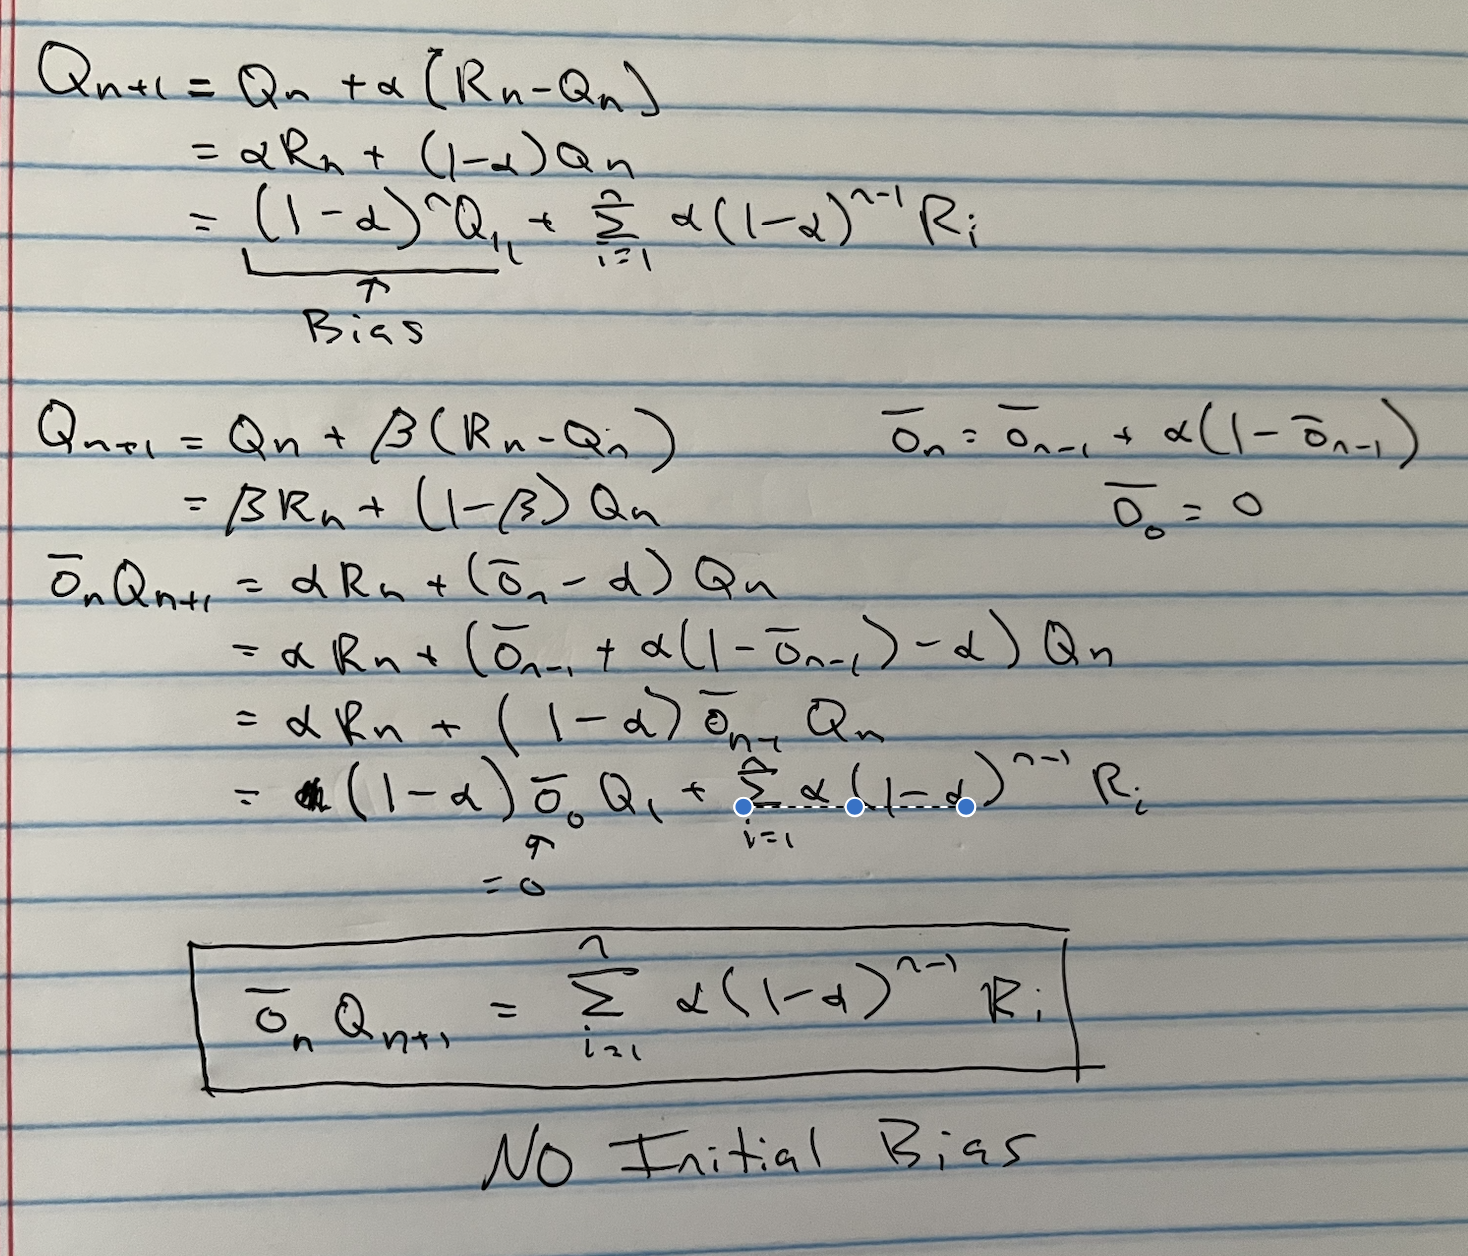 Qn+1 = Qn + α[Rn-Qn]
= αRn + (1-α)Qn
= (1-α)^n Q1 + Σ_{i=1}^{n} α(1-α)^{n-1} Ri
↑
Bias
Qn+1 = Qn + β(Rn-Qn)    ōn = ōn-1 + α(1-ōn-1)
= βRn + (1-β)Qn    ō0 = 0
ōnQn+1 = αRn + (ōn-α)Qn
= αRn + (ōn-1 + α(1-ōn-1)-α)Qn
= αRn + (1-α)ōn-1 Qn
= (1-α)ō0 Q1 + Σ_{i=1}^{n} α(1-α)^{n-1} Ri
↑
= 0
ōn Qn+1 = Σ_{i=1}^{n} α(1-α)^{n-1} Ri
NO Initial Bias